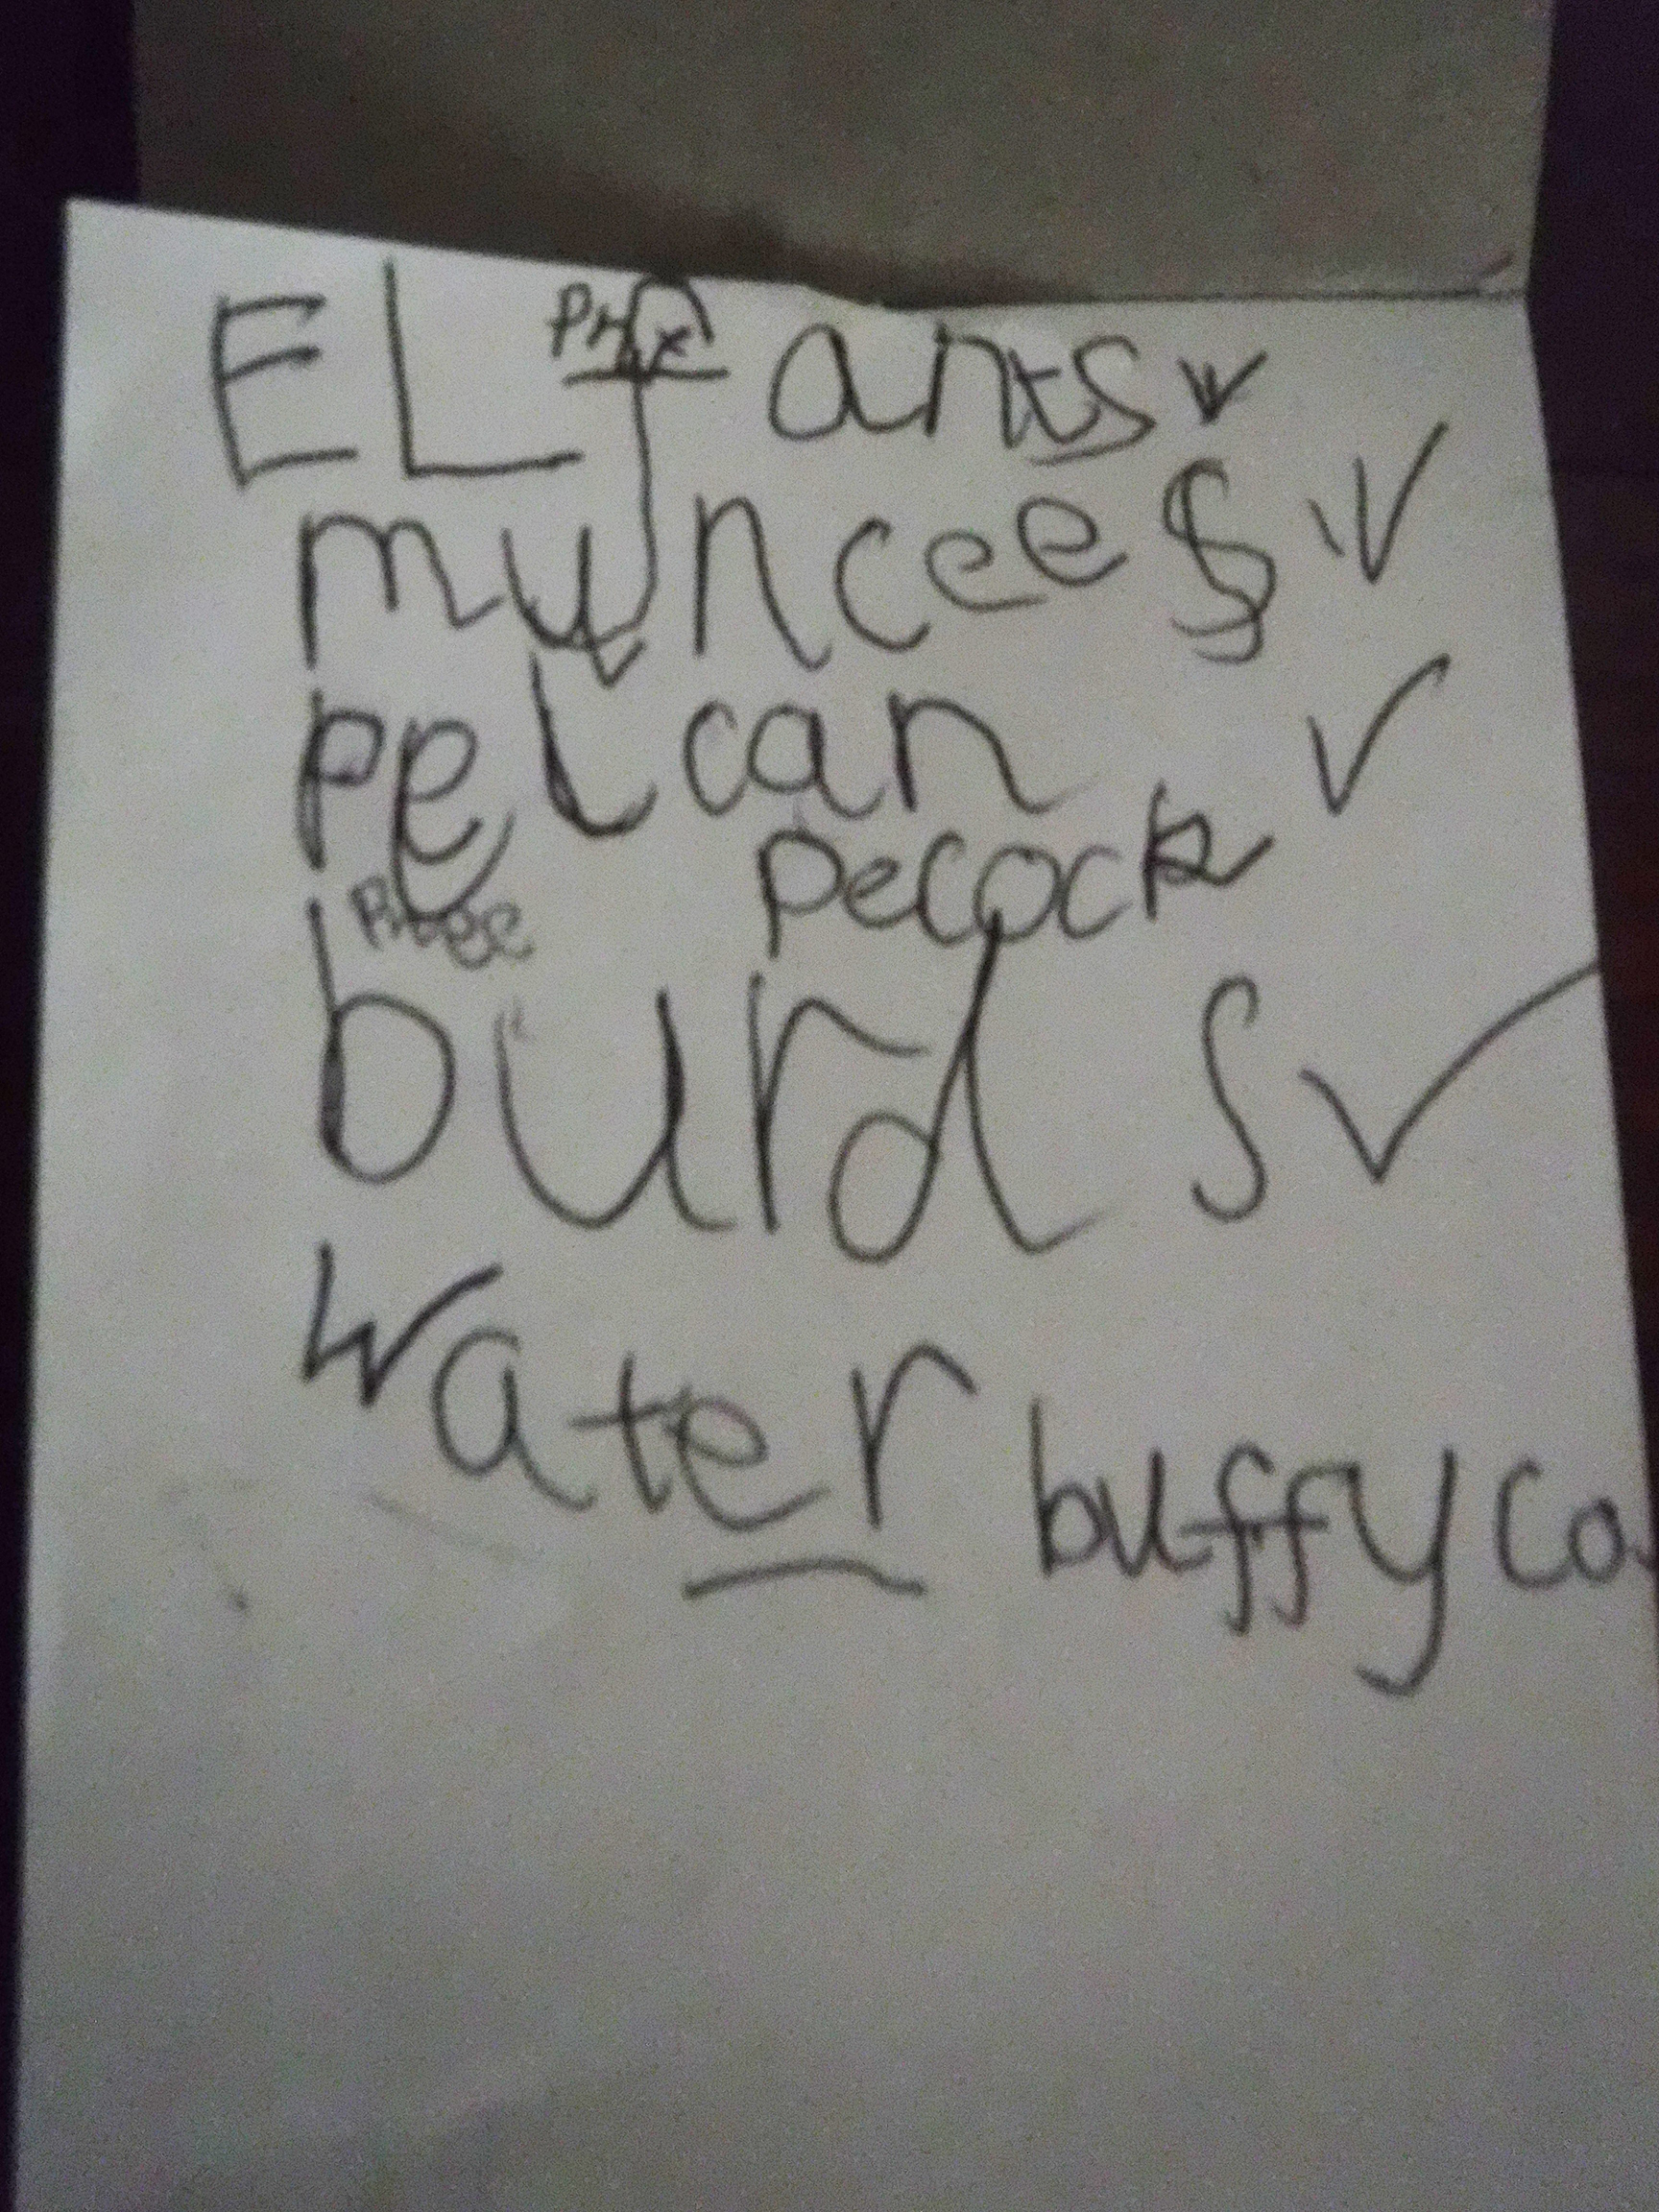 ELfants
muncees
pelcan
pecock
burds
water buffyco